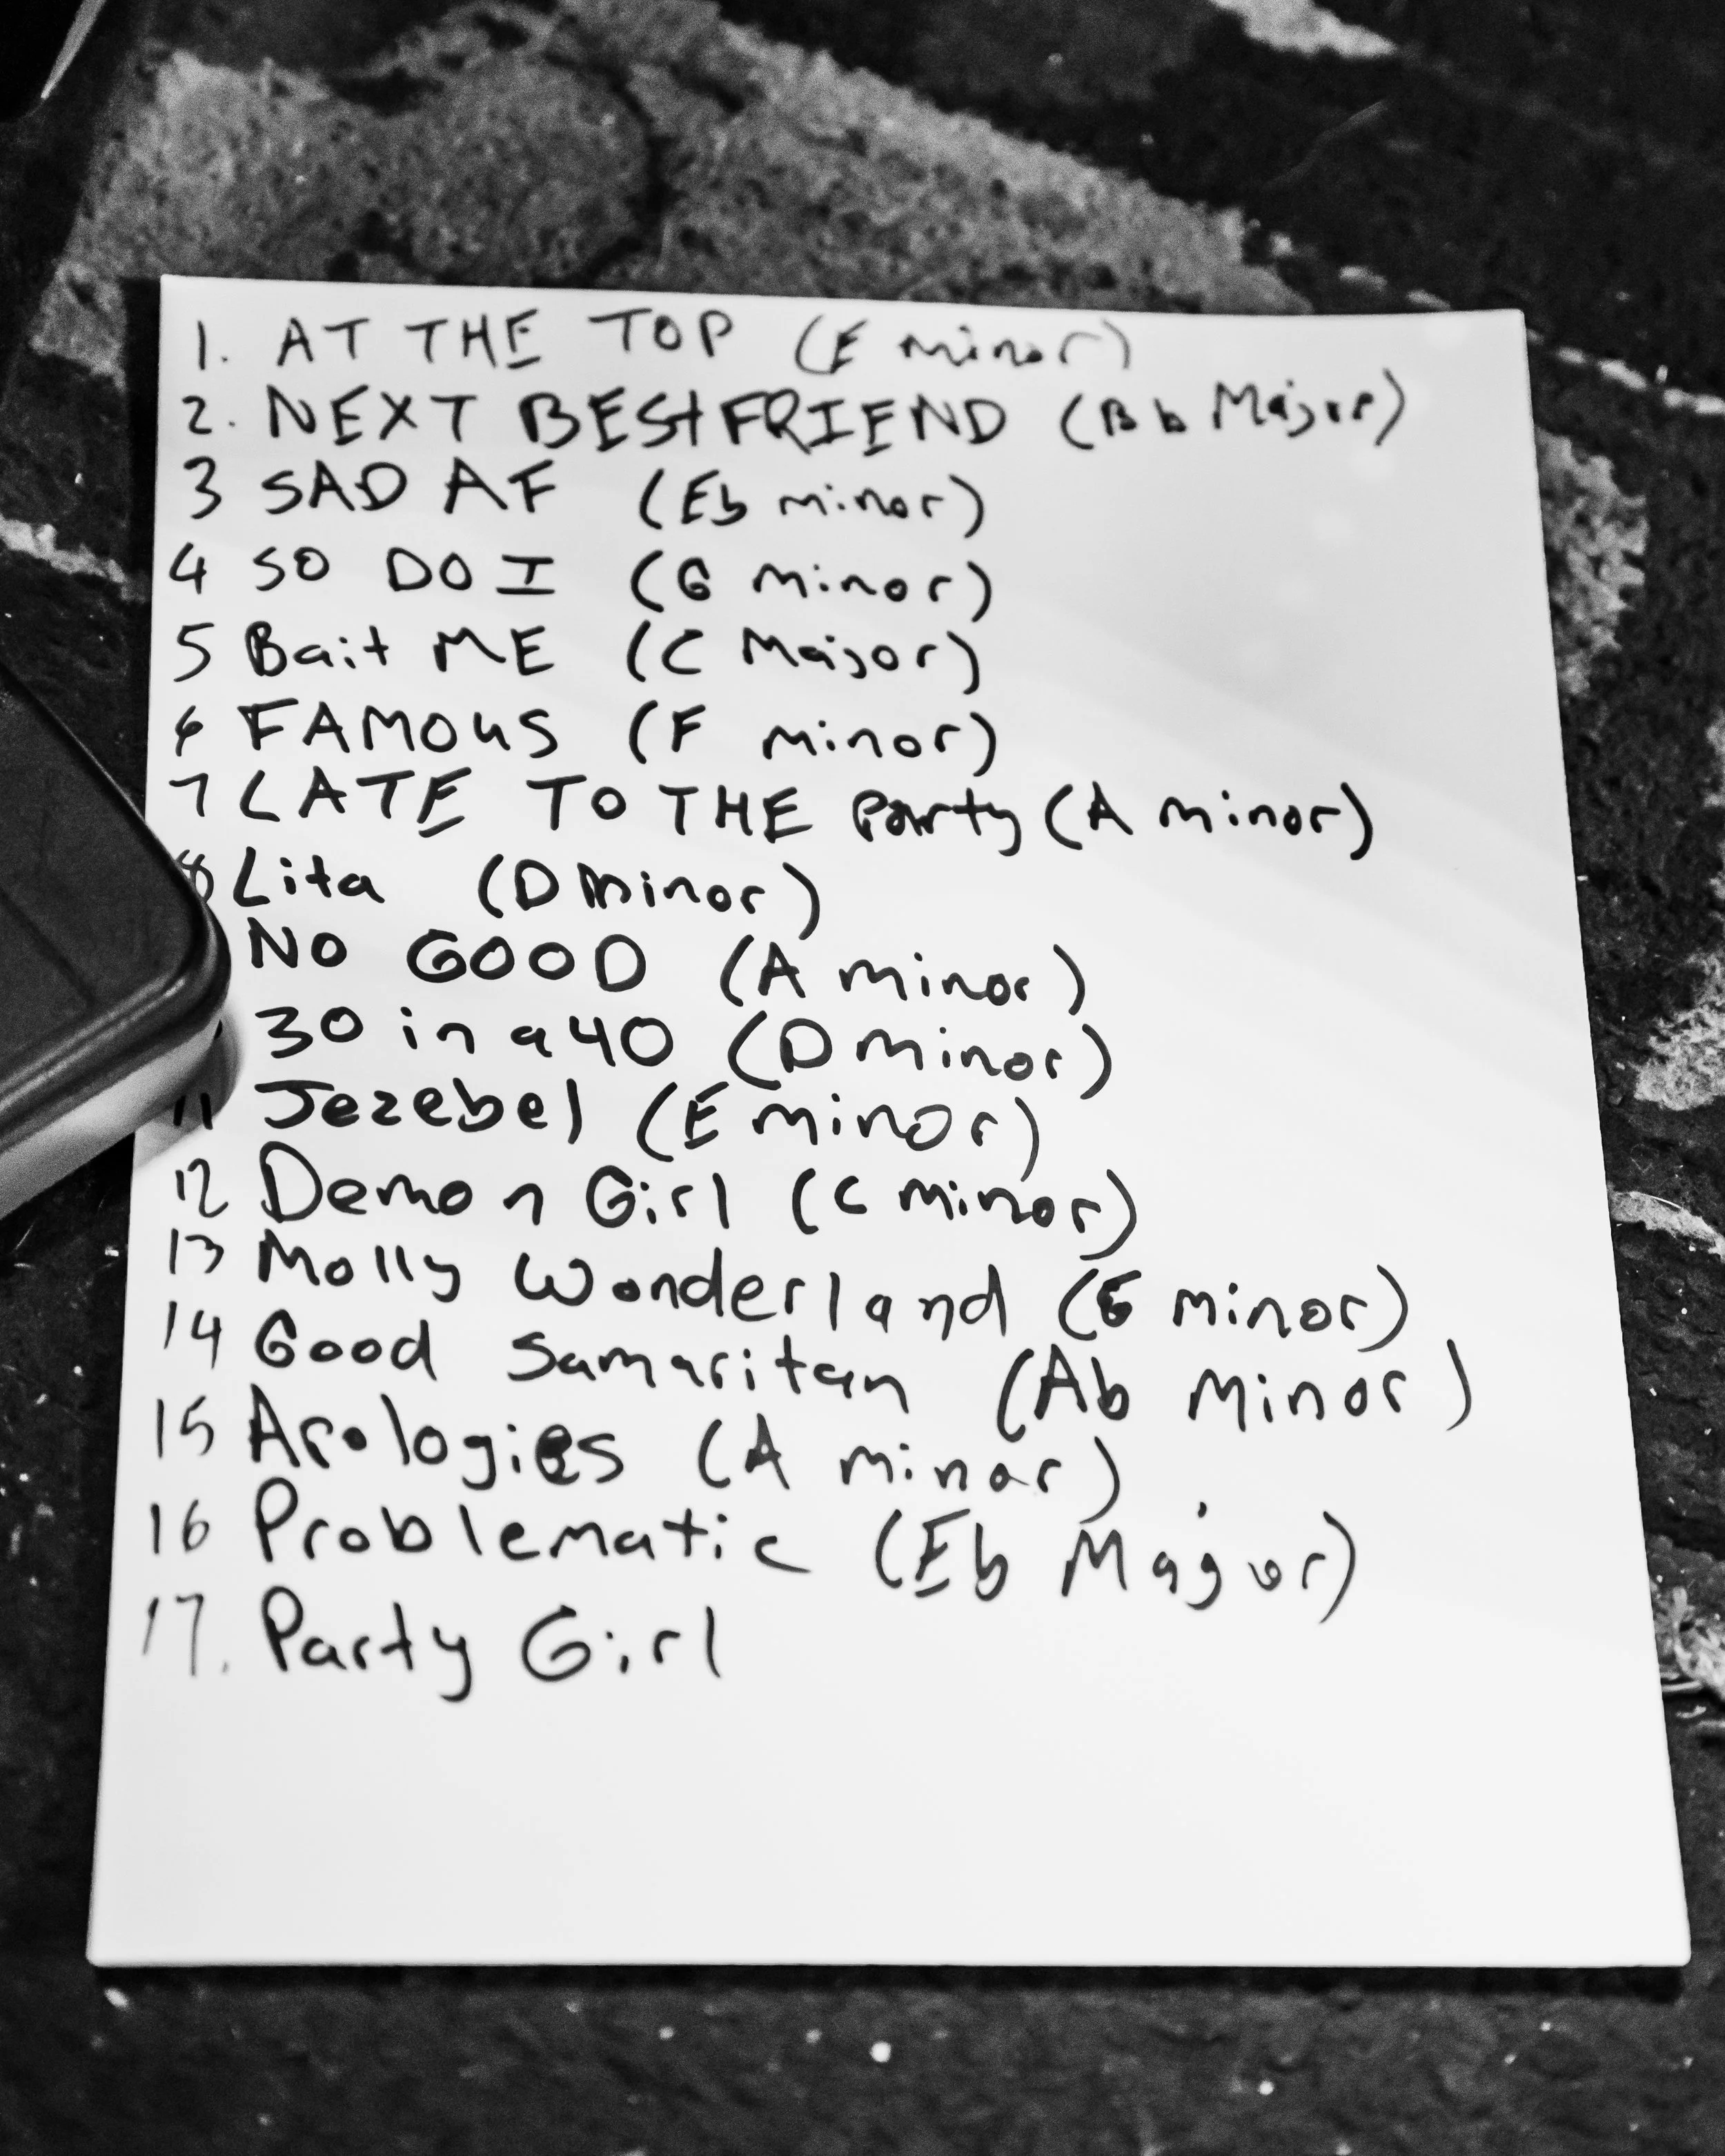 1. AT THE TOP (E minor)
2. NEXT BESTFRIEND (Bb Major)
3 SAD AF (Eb minor)
4 SO DO I (G minor)
5 Bait ME (C Major)
6 FAMOUS (F minor)
7 LATE TO THE Party (A minor)
8 Lita (D minor)
NO GOOD (A minor)
30 in a 40 (D minor)
11 Jezebel (E minor)
12 Demon Girl (C minor)
13 Molly Wonderland ( minor)
14 Good Samaritan (Ab Minor)
15 Apologies (A minor)
16 Problematic (Eb Major)
17. Party Girl